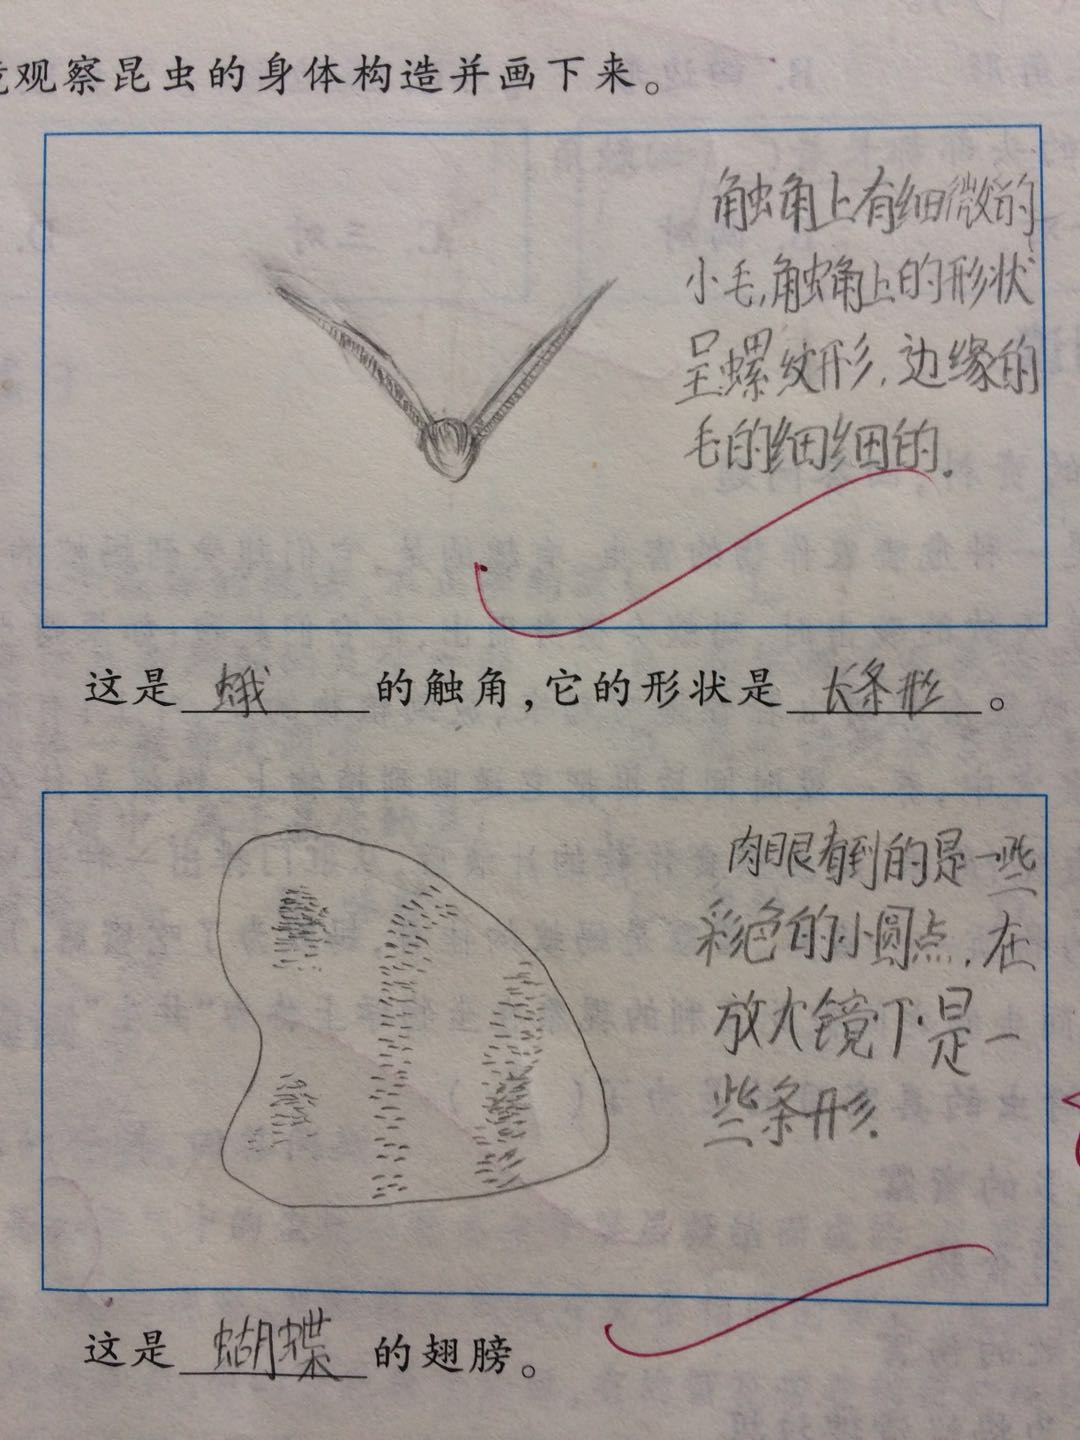 观察昆虫的身体构造并画下来。
触角上有细微的
小毛,触角上的形状
呈螺纹形,边缘的
毛的细细的.
这是 蛾 的触角,它的形状是 长条形 。
肉眼看到的是一些
彩色的小圆点,在
放大镜下是一
些条形.
这是 蝴蝶 的翅膀。